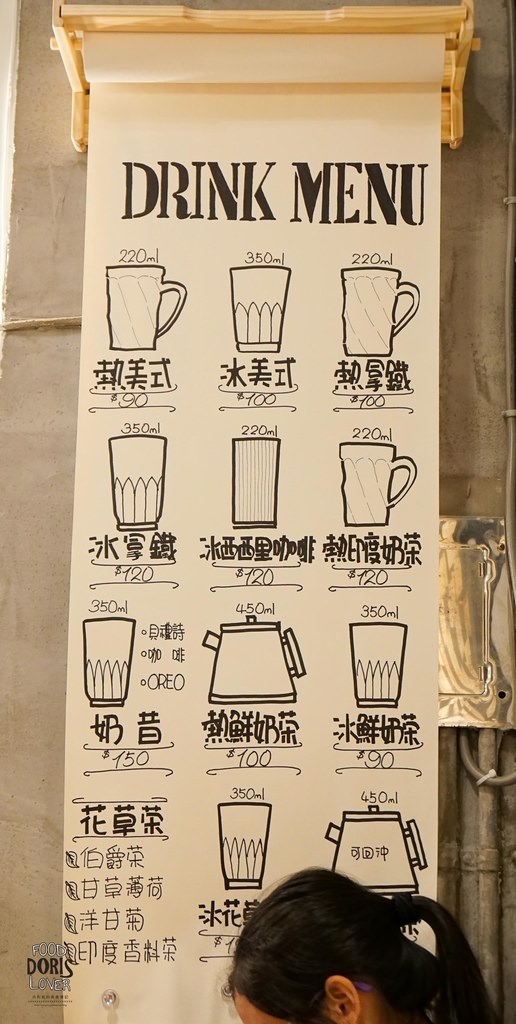 DRINK MENU
220ml
熱美式
$90
350ml
冰美式
$100
220ml
熱拿鐵
$100
350ml
冰拿鐵
$120
220ml
冰西西里咖啡
$120
220ml
熱印度奶茶
$120
350ml
貝禮詩
咖啡
OREO
奶昔
$150
450ml
熱鮮奶茶
$100
350ml
冰鮮奶茶
$90
花草茶
伯爵茶
甘草薄荷
洋甘菊
印度香料茶
350ml
冰花草
450ml
可回沖
FOOD
DORIS
LOVER